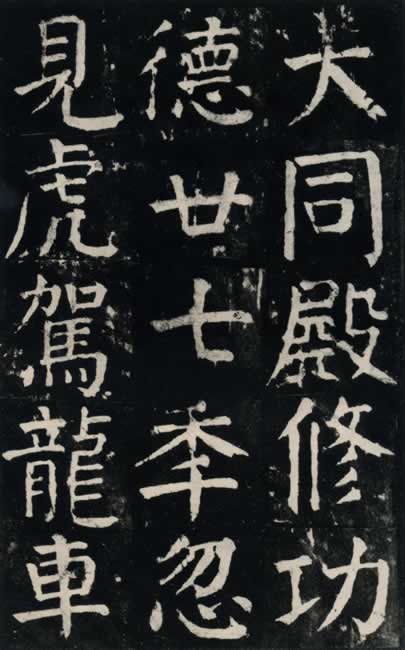 大同殿修功
德廿七季忽
見虎駕龍車